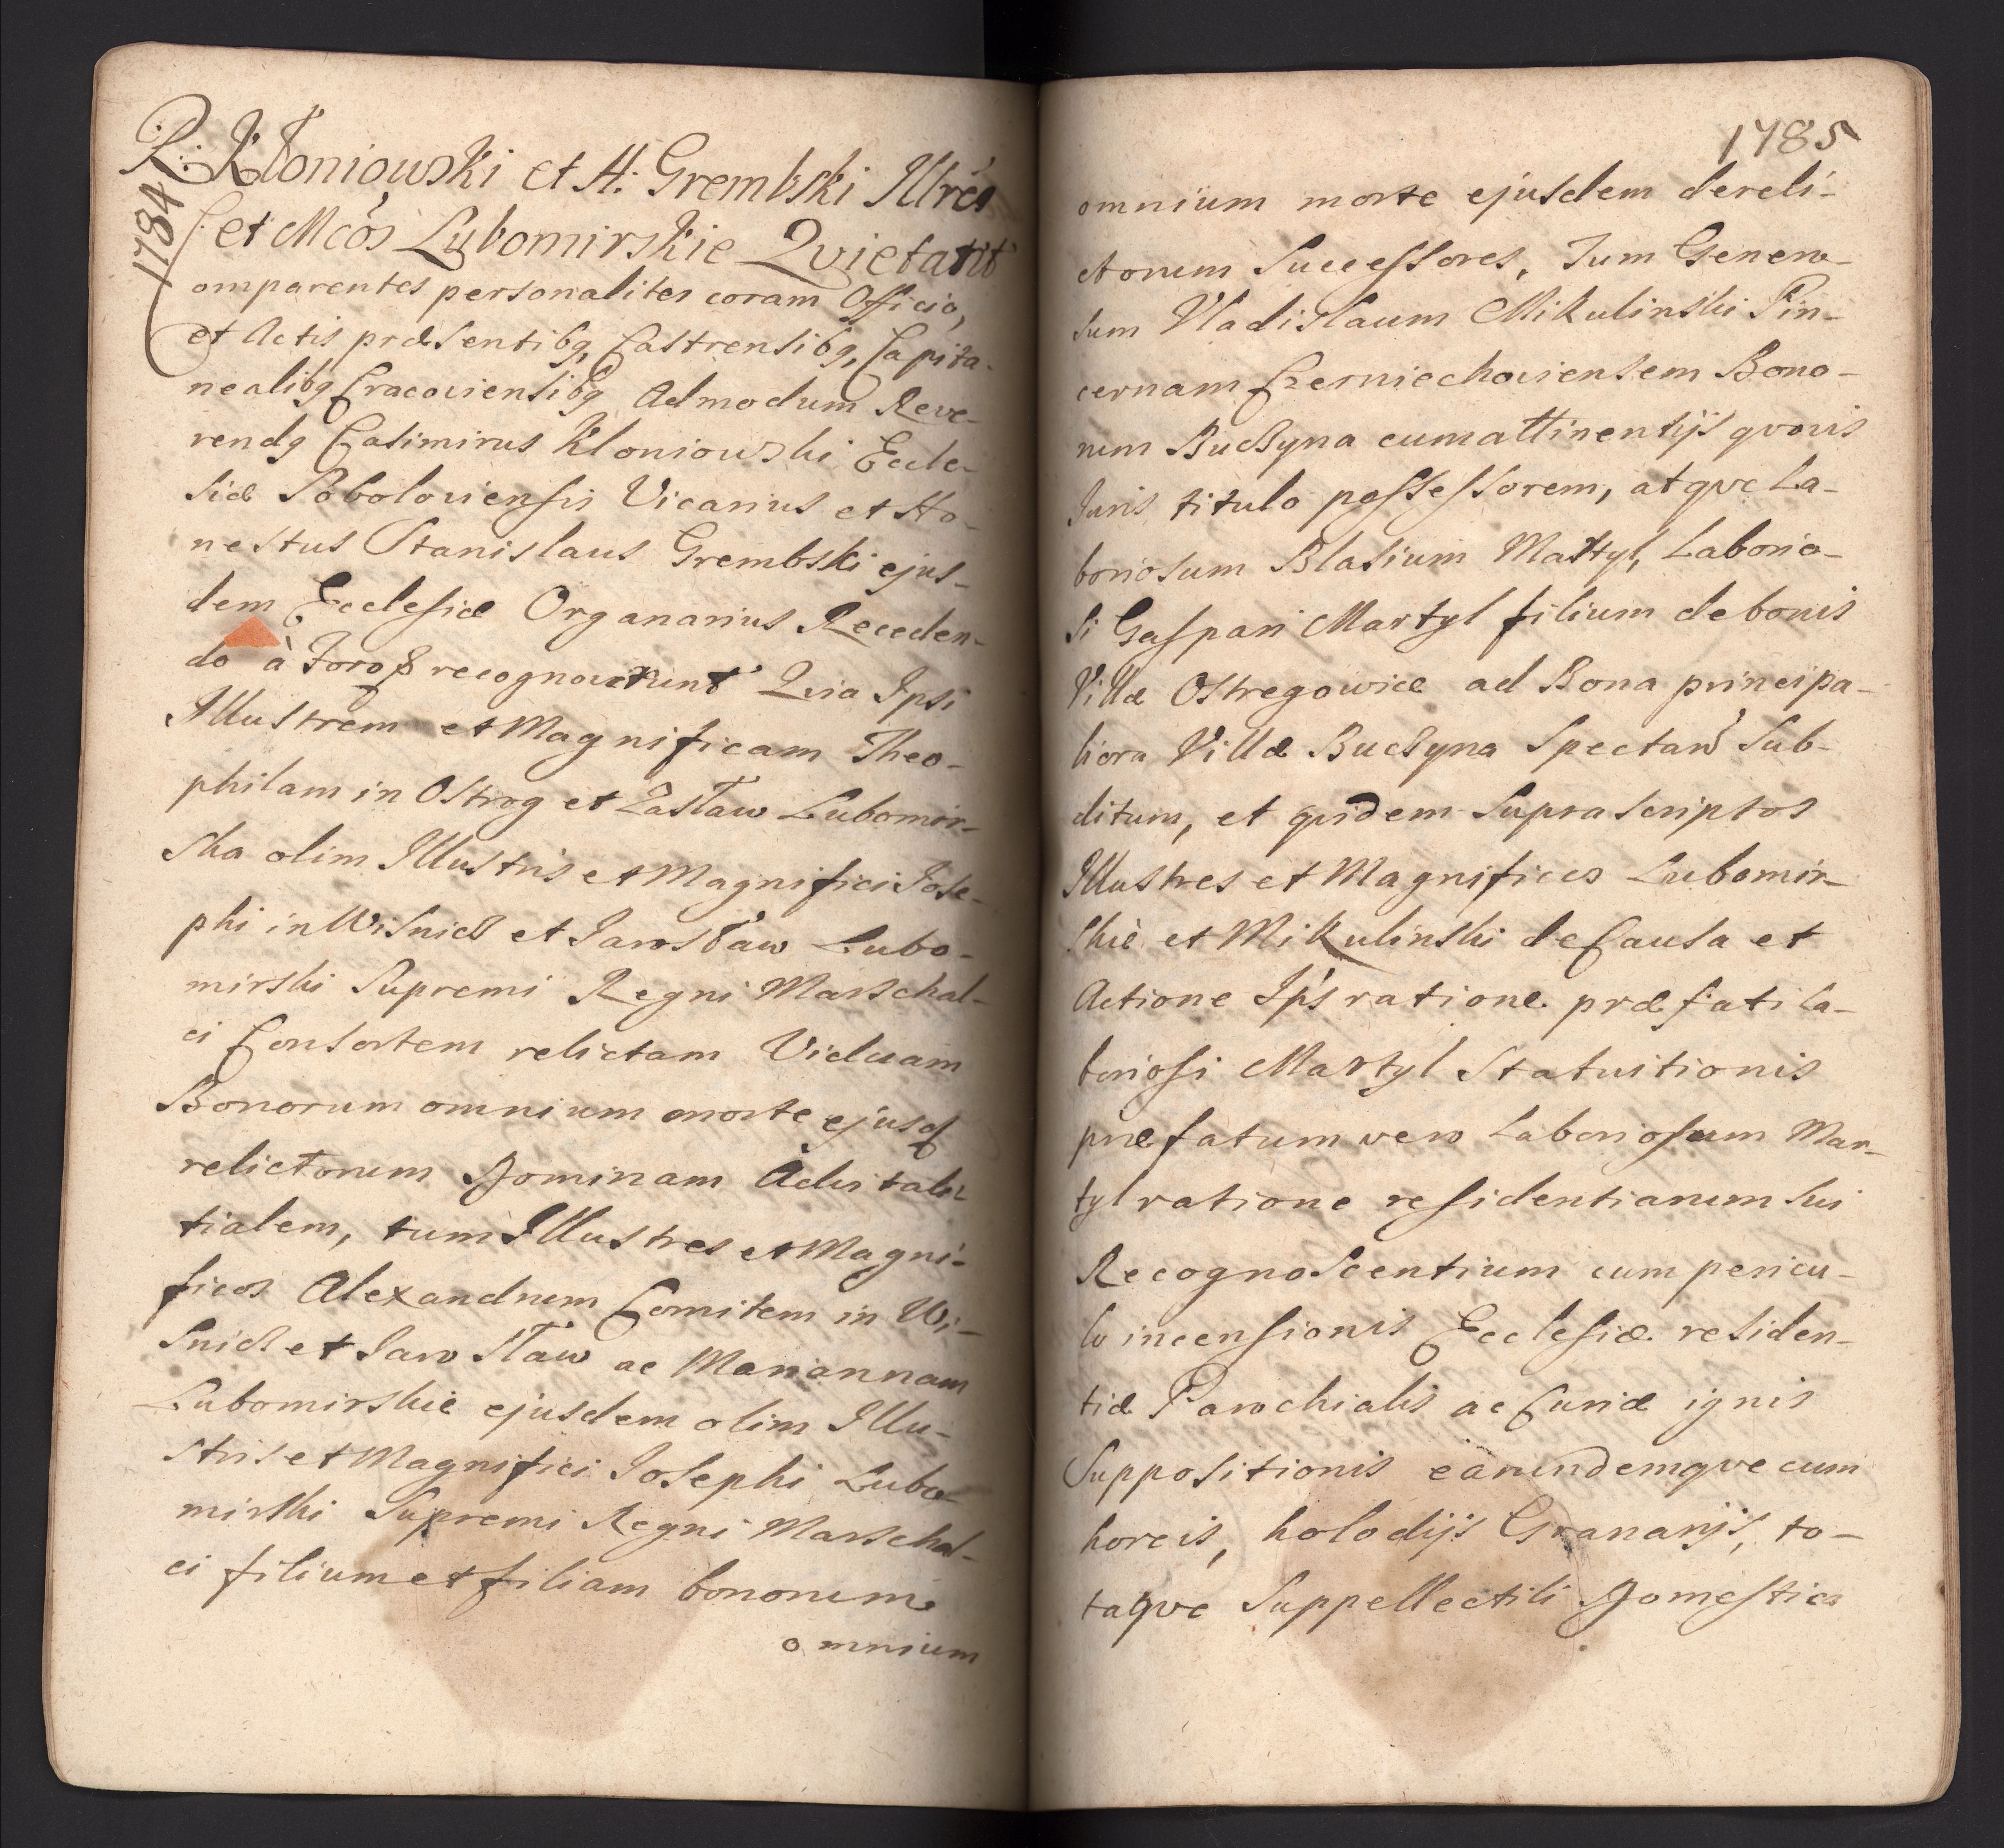 1784
R: Kłoniowski et H: Grembski Illres
et Mcos Lubomirskie Qvietant
Comparentes personaliter coram Officio,
et Actis præsentibg, Castrensibg, Capita-
nealibg Cracoviensibg Admodum Reve-
rendg Casimirus Kloniowski Eccle-
siæ Poboloviensis Vicarius et Ho-
nestus Stanislaus Grembski ejus-
dem Ecclesiæ Organarius Receden-
do à Foro recognoverunt Qvia Ipsi
Illustrem et Magnificam Theo-
philam in Ostrog et Zasław Lubomir-
ska olim Illustris et Magnifici Jose-
phi in Wisnicz et Jarosław Lubo-
mirski Supremi Regni Marschal-
ci Consortem relictam Viduam
Bonorum omnium morte ejusd
relictorum Dominam Advitali-
tialem, tum Illustres et Magni-
ficos Alexandrum Comitem in Wi-
snicz et Jarosław ac Mariannam
Lubomirskie ejusdem olim Illu-
stris et Magnifici Josephi Lubo-
mirski Supremi Regni Marschal-
ci filium et filiam bonorum
omnium
1785
omnium morte ejusdem dereli-
ctorum Successores, Tum Genero-
sum Vladislaum Mikulinski Pin-
cernam Czerniechoviensem Bono-
rum Buczyna cum attinentijs qvovis
Juris titulo possessorem, atqve La-
boriosum Blasium Martyl, Laborio-
si Gaspari Martyl filium de bonis
Villæ Ostregowice ad Bona principa-
liora Villæ Buczyna Spectan Sub-
ditum, et qvidem Suprascriptos
Illustres et Magnificos Lubomir-
skie et Mikulinski de Causa et
Actione Ips ratione præfati la-
boriosi Martyl Statuitionis
præfatum vero Laboriosum Mar-
tyl ratione residentiarum sui
Recognoscentium cum pericu-
lo incensionis Ecclesiæ residen-
tiæ Parochialis ac Curiæ ignis
Suppositionis earundemqve cum
horeis, holodijs Granarijs, to-
taqve Suppellectili Domestica